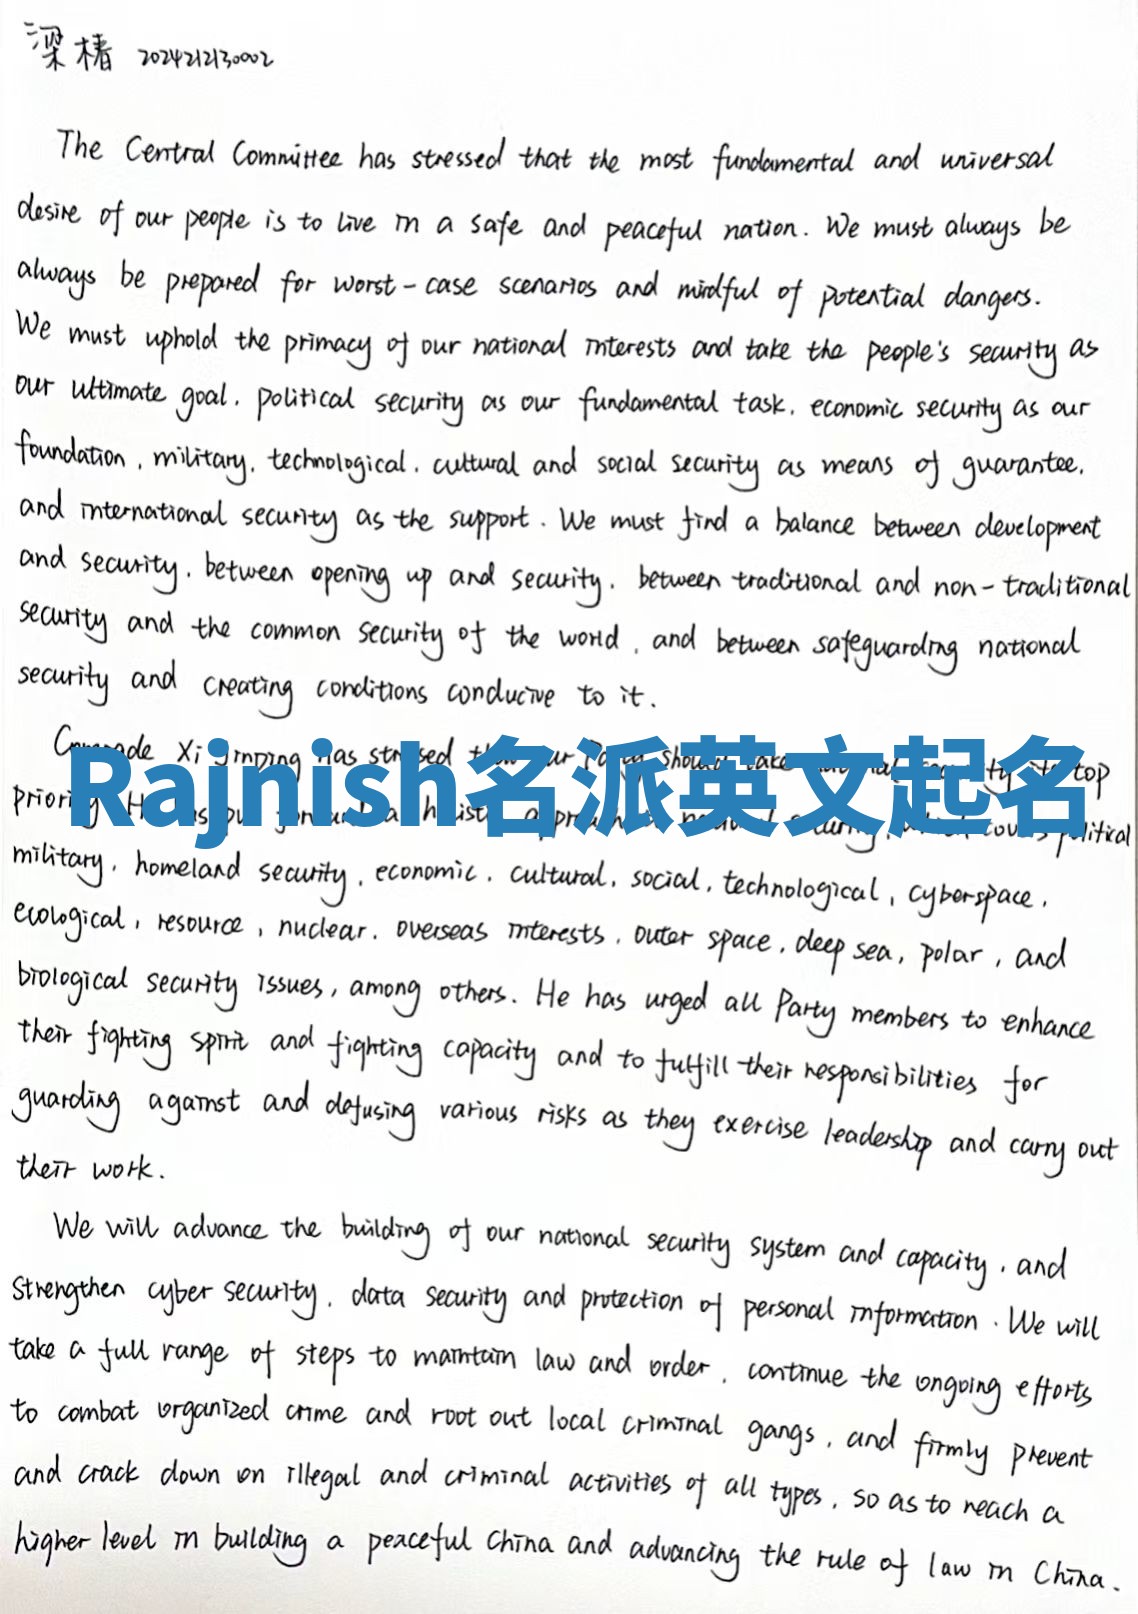 梁椿 2024212130002
The Central Committee has stressed that the most fundamental and universal
desire of our people is to live in a safe and peaceful nation. We must always be
always be prepared for worst-case scenarios and mindful of potential dangers.
We must uphold the primacy of our national interests and take the people's security as
our ultimate goal, political security as our fundamental task, economic security as our
foundation, military, technological, cultural and social security as means of guarantee,
and international security as the support. We must find a balance between development
and security, between opening up and security, between traditional and non-traditional
security and the common security of the world, and between safeguarding national
security and creating conditions conducive to it.
Xi Jinping has stressed
top
Rajnish名派英文起名
political
military, homeland security, economic, cultural, social, technological, cyberspace,
ecological, resource, nuclear, overseas interests, outer space, deep sea, polar, and
biological security issues, among others. He has urged all Party members to enhance
their fighting spirit and fighting capacity and to fulfill their responsibilities for
guarding against and defusing various risks as they exercise leadership and carry out
their work.
We will advance the building of our national security system and capacity, and
strengthen cyber security, data security and protection of personal information. We will
take a full range of steps to maintain law and order, continue the ongoing efforts
to combat organized crime and root out local criminal gangs, and firmly prevent
and crack down on illegal and criminal activities of all types, so as to reach a
higher level in building a peaceful China and advancing the rule of law in China.